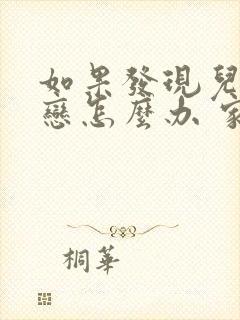 如果發現兒
戀怎麼办 家
桐華